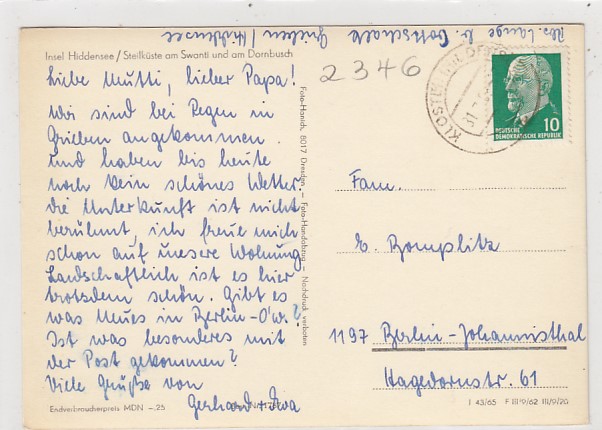 Abs. Lange b. Gottschalk Grieben / Hiddensee
Insel Hiddensee / Steilküste am Swanti und am Dornbusch
Liebe Mutti, lieber Papa!
Wir sind bei Regen in
Grieben angekommen
und haben bis heute
noch kein schönes Wetter.
Die Unterkunft ist nicht
berühmt, ich freue mich
schon auf unsere Wohnung
Landschaftlich ist es hier
trotzdem schön. Gibt es
was Neues in Berlin-O'w.?
Ist was besonderes mit
der Post gekommen?
Viele Grüße von
Gerhard + Eva
Endverbraucherpreis MDN -,25
Foto-Hanich, 8017 Dresden – Foto-Handabzug – Nachdruck verboten
2346
KLOSTER
10
DEUTSCHE
DEMOKRATISCHE REPUBLIK
Fam.
E. Bomplitz
1197 Berlin-Johannisthal
Hagedornstr. 61
I 43/65 F III/9/62 III/9/20